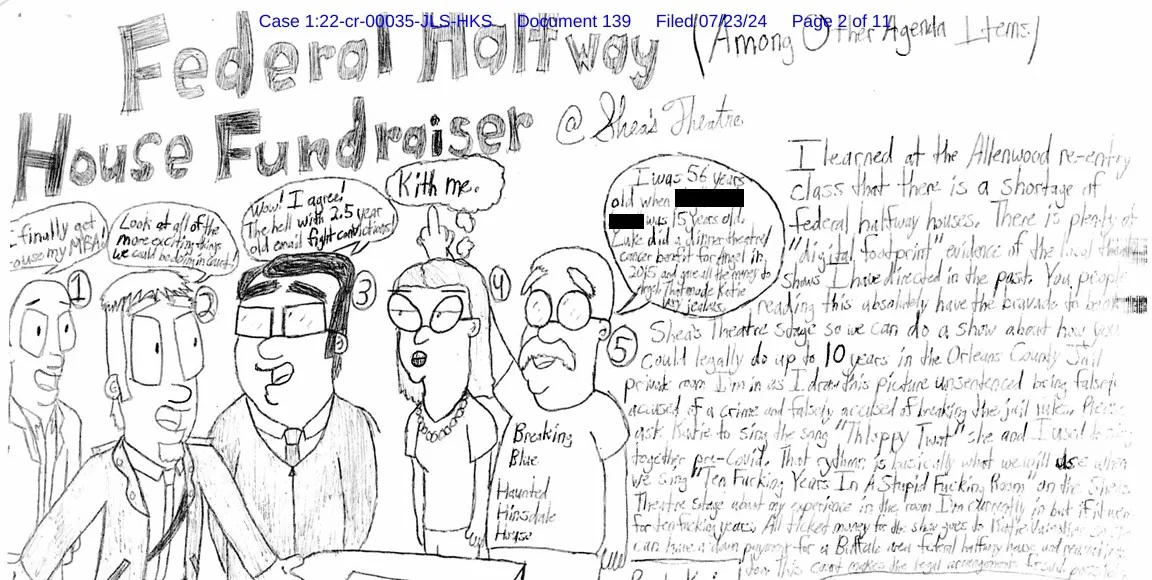 Case 1:22-cr-00035-JLS-HKS Document 139 Filed 07/23/24 Page 2 of 11
Federal Halfway
(Among Other Agenda Items)
House Fundraiser
@ Shea's Theatre
finally get
use my MBA!
Look at all of the
more exciting things
we could be doing in court!
Wow! I agree!
The hell with 2.5 year
old email fight convictions!
Kith me.
I was 56 years
old when
was 15 years old.
Luke did a dinner theatre
cancer benefit for Angel in
2015 and gave all the money to
Angel. That made Katie
very jealous.
1
2
3
4
5
Breaking
Blue
Haunted
Hinsdale
House
I learned at the Allenwood re-entry
class that there is a shortage of
federal halfway houses. There is plenty of
"digital footprint" evidence of the local theatre
shows I have directed in the past. You people
reading this absolutely have the bravado to book
Shea's Theatre stage so we can do a show about how you
could legally do up to 10 years in the Orleans County Jail
private room I'm in as I draw this picture unsentenced being falsely
accused of a crime and falsely accused of breaking the jail rules. Please
ask Katie to sing the song "Thloppy Twat" she and I used to sing
together pre-Covid. That rythmn is basically what we will use when
we sing "Ten Fucking Years In A Stupid Fucking Room" on the Shea's
Theatre stage about my experience in the room I'm currently in but if it were
for ten fucking years. All ticket money to the show goes to Katie
can have a down payment for a Buffalo area federal halfway house and
for. This court makes the legal arrangements